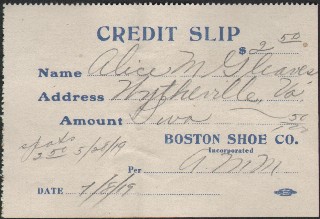 CREDIT SLIP
$ 2 50
Name Alice M Gleaves
Address Wytheville, Va
Amount Two 50/100
BOSTON SHOE CO.
Incorporated
spats
2 50 3/28/19
Per AMM
DATE 7/8/19